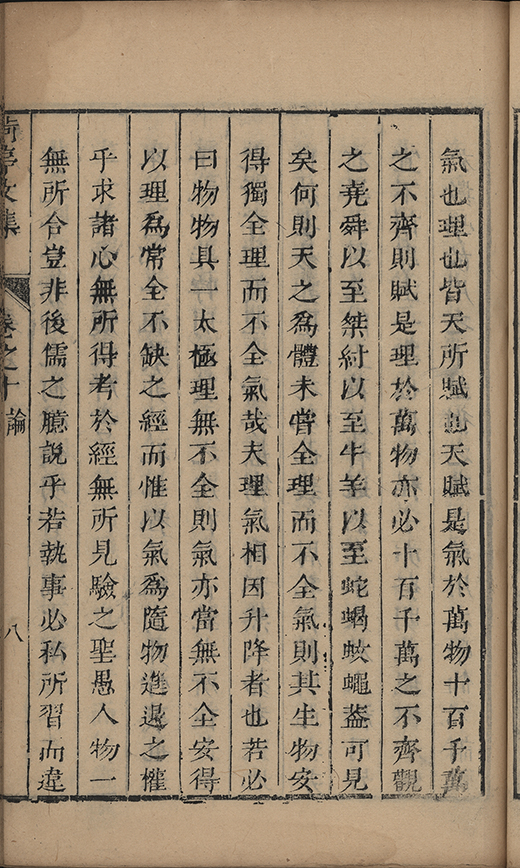 氣也理也皆天所賦也天賦是氣於萬物十百千萬
之不齊則賦是理於萬物亦必十百千萬之不齊觀
之堯舜以至桀紂以至牛羊以至蛇蝎蚊蠅葢可見
矣何則天之爲體未嘗全理而不全氣則其生物安
得獨全理而不全氣哉夫理氣相因升降者也若必
曰物物具一太極理無不全則氣亦當無不全安得
以理爲常全不缺之經而惟以氣爲隨物進退之權
乎求諸心無所得考於經無所見驗之聖愚人物一
無所合豈非後儒之臆說乎若執事必私所習而違
文集 卷之十 論 八